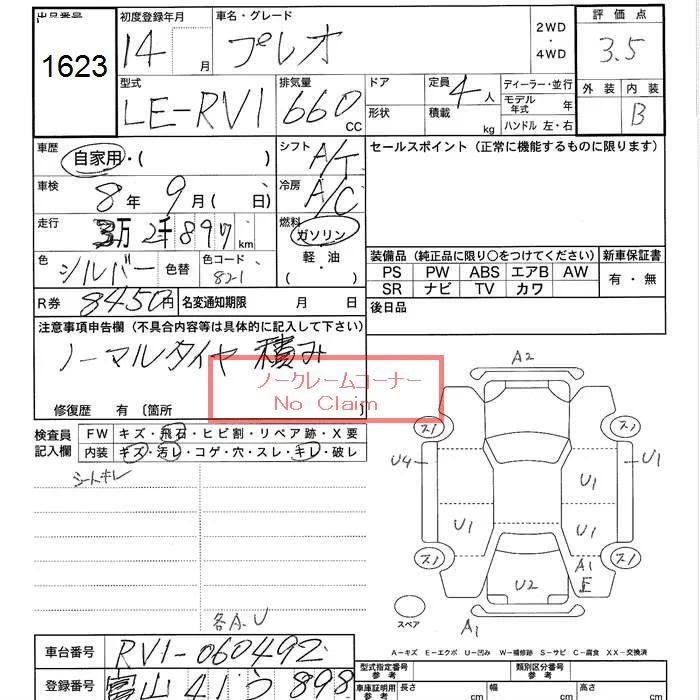 出品番号 初度登録年月 車名・グレード 2WD・4WD 評価点
1623 14 月 プレオ 3.5
型式 排気量 ドア 定員 ディーラー・並行 外装 内装
LE-RV1 660 cc 形状 4人 積載 kg モデル年式 年 ハンドル 左・右 B
車歴 自家用・( ) シフト A/T セールスポイント(正常に機能するものに限ります)
車検 8年 9月( 日) 冷房 A/C
走行 3万2千897km 燃料 ガソリン・軽・油 ( )
色 シルバー 色替 色コード 821
装備品(純正品に限り○をつけてください) 新車保証書
PS PW ABS エアB AW 有・無
SR ナビ TV カワ
R券 8450円 名変通知期限 月 日 後日品
注意事項申告欄(不具合内容等は具体的に記入して下さい)
ノーマルタイヤ 積み
ノークレームコーナー
No Claim
修復歴 有〔箇所 〕
検査員記入欄 FW キズ・飛石・ヒビ割・リペア跡・X要
内装 キズ・汚レ・コゲ・穴・スレ・キレ・破レ
シートキレ
各A.U
A2
スリ スリ
U4 U1 U1
U1 U1
スリ スリ
A1
E
U2
スペア A1
A-キズ E-エクボ U-凹み W-補修跡 S-サビ C-腐食 XX-交換済
車台番号 RV1-060492 型式指定番号 参考 類別区分番号 参考
登録番号 富山 41 う 898 車庫証明用 参考 長さ cm 幅 cm 高さ cm